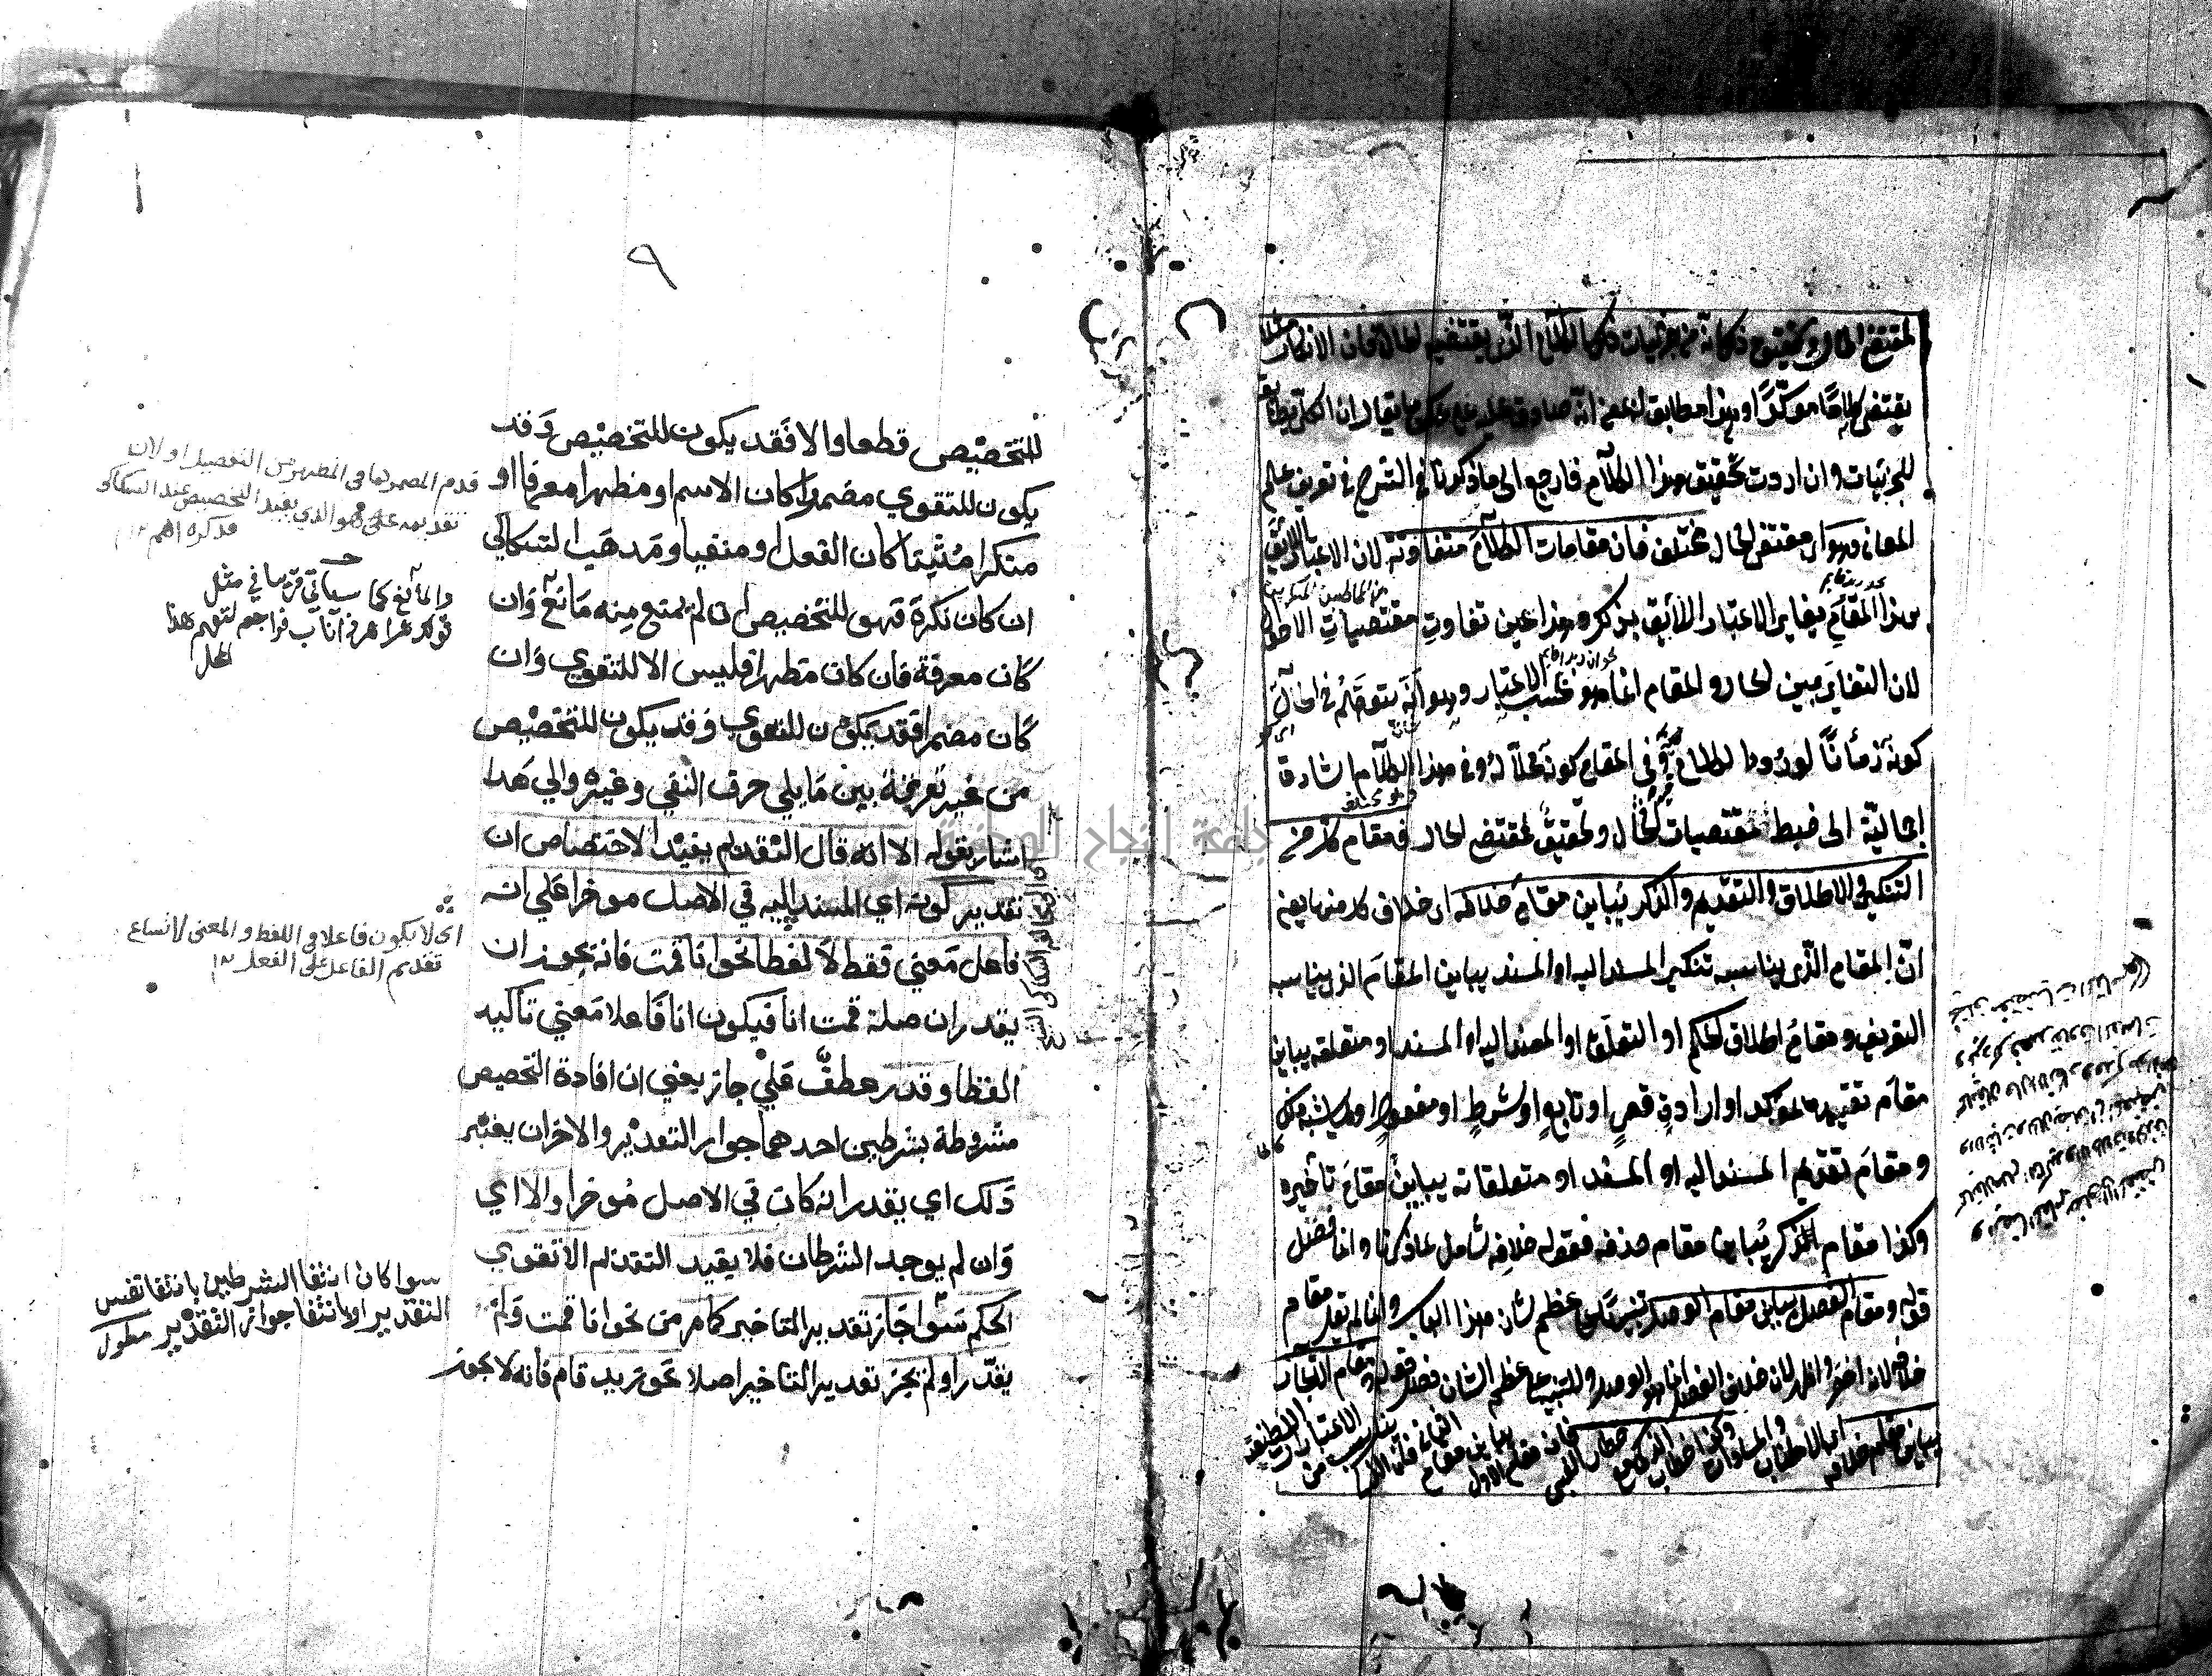 لمقتضى الحال وتحقيق ذلك انه من جزئيات ذلك الكلام الذي يقتضيه الحال فان الانكار مثلا
يقتضي كلاما مؤكدا وهذا مطابق له بمعنى انه صادق عليه على عكس ما يقال ان الكلي مطابق
للجزئيات وان اردت تحقيق هذا الكلام فارجع الى ما ذكرنا في الشرح في تعريف علم
المعاني وهو اي مقتضى الحال مختلف فان مقامات الكلام متفاوتة لان الاعتبار اللائق
بهذا المقام يغاير الاعتبار اللائق بذلك وهذا عين تفاوت مقتضيات الاحوال
لان التغاير بين الحال والمقام انما هو بحسب الاعتبار وهو انه يتوهم في الحال
كونه زمانا لورود الكلام فيه وفي المقام كونه محلا له وفي هذا الكلام اشارة
اجمالية الى ضبط مقتضيات الحال وتحقيق لمقتضى الحال فمقام كل من
التنكير والاطلاق والتقديم والذكر يباين مقام خلافه اي خلاف كل منها يعني
ان المقام الذي يناسبه تنكير المسند اليه او المسند يباين المقام الذي يناسبه
التعريف ومقام اطلاق الحكم او التعلق او المسند اليه او المسند او متعلقه يباين
مقام تقييده بمؤكد او اداة قصر او تابع او شرط او مفعول او ما يشبه ذلك
ومقام تقديم المسند اليه او المسند او متعلقاته يباين مقام تأخيره
وكذا مقام الذكر يباين مقام حذفه فقوله خلافه شامل لما ذكرنا وانما فصل
قوله ومقام الفصل يباين مقام الوصل تنبيها على عظم شان هذا الباب وانما لم يقل مقام
خلافه لانه اخصر واظهر لان خلاف الفصل انما هو الوصل وللتنبيه على عظم الشان فصل قوله ومقام الايجاز
يباين مقام خلافه اي الاطناب والمساواة وكذا خطاب الذكي مع خطاب الغبي فان مقام الاول يباين مقام الثاني فان الذكي يناسبه من الاعتبارات اللطيفة
٩
للتخصيص قطعا والا فقد يكون للتخصيص وقد
يكون للتقوي مضمرا كان الاسم او مظهرا معرفا او
منكرا مثبتا كان الفعل او منفيا ومذهب السكاكي
ان كان نكرة فهو للتخصيص ان لم يمنع منه مانع وان
كان معرفة فان كان مظهرا فليس الا للتقوي وان
كان مضمرا فقد يكون للتقوي وقد يكون للتخصيص
من غير تفرقة بين ما يلي حرف النفي وغيره والي هذا
اشار بقوله الا انه قال التقديم يفيد الاختصاص ان
تقدير كونه اي المسند اليه في الاصل موخرا علي انه
فاعل معني فقط لا لفظا نحو انا قمت فانه يجوز ان
يقدر ان صلة قمت انا فيكون انا فاعلا معني تاكيد
الفظا وقدر عطف علي جاز يعني ان افادة التخصيص
مشروطة بشرطين احدهما جواز التقدير والاخر ان يعتبر
ذلك اي يقدر انه كان في الاصل موخرا والا اي
وان لم يوجد الشرطان فلا يفيد التقديم الا تقوي
الحكم سوا جاز تقدير التاخير كما مر من نحو انا قمت ولم
يقدر او لم يجز تقدير التاخير اصلا نحو زيد قام فانه لا يجوز
قدم المضمر هنا في
تقديمه علي هو الذي يفيد التخصيص عند السكاكي
والمانع كما سياتي قريبا في مثل
قولك شر اهر ذا ناب فراجعه لتفهم هذا
المحل
اي لا يكون فاعلا في اللفظ والمعنى لامتناع
تقديم الفاعل علي الفعل ١٢
سوا كان انتفا الشرطين بانتفا نفس
التقدير او بانتفا جواز التقدير مطول